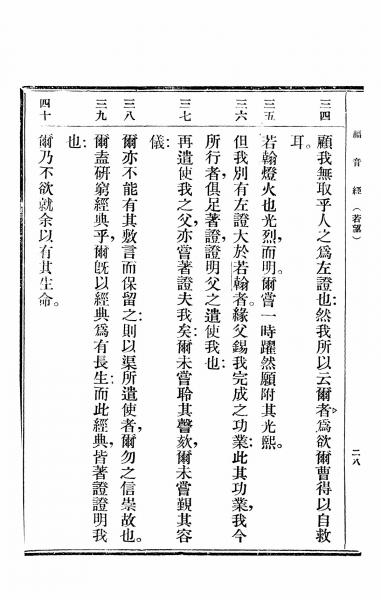 福音經 (若望)
二八
三四 顧我無取乎人之爲左證也:然我所以云爾者,爲欲爾曹得以自救
耳。
三五 若翰燈火也光烈,而明。爾嘗一時躍然願附其光熙。
三六 但我別有左證大於若翰者。緣父錫我完成之功業:此其功業,我今
所行者,俱足著證證明父之遣使我也:
三七 再遣使我之父,亦嘗著證夫我矣:爾未嘗聆其聲欬,爾未嘗覲其容
儀:
三八 爾亦不能有其敷言而保留之:則以渠所遣使者,爾勿之信崇故也。
三九 爾盍研窮經典乎,爾旣以經典爲有長生而此經典皆著證證明我
也:
四十 爾乃不欲就余以有其生命。